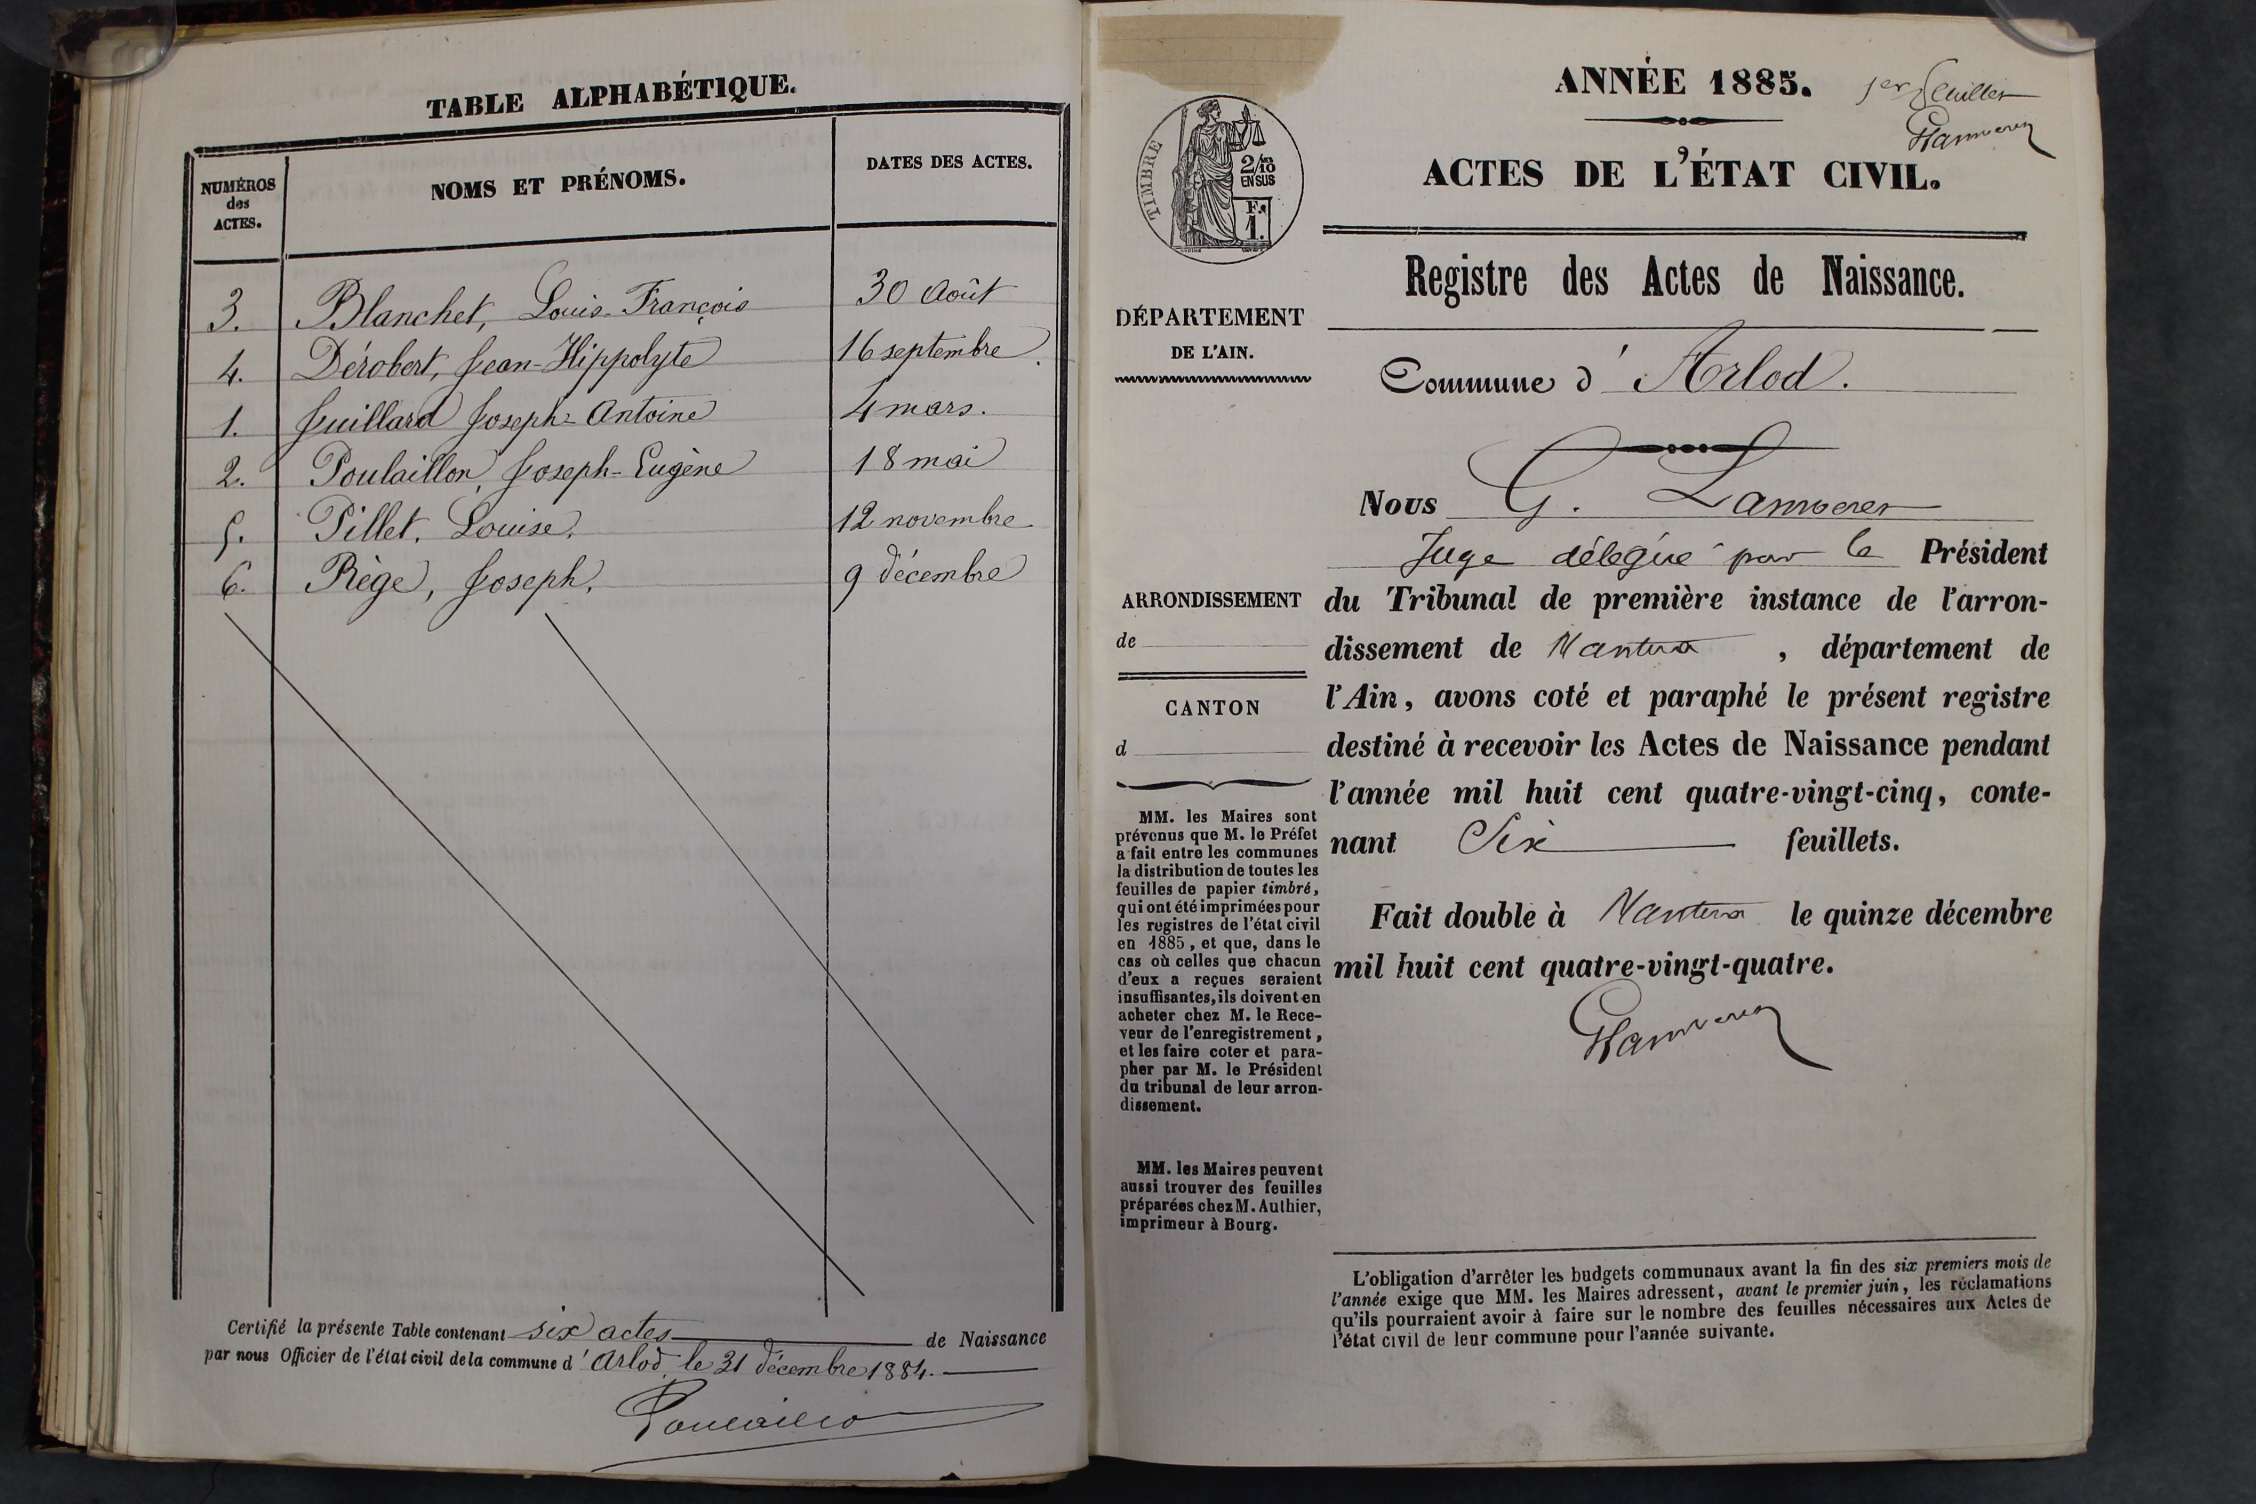 TABLE ALPHABÉTIQUE.
NUMÉROS
des
ACTES.
NOMS ET PRÉNOMS.
DATES DES ACTES.
3. Blanchet, Louis-François 30 Août
4. Dérobert, Jean-Hippolyte 16 septembre.
1. Juillard Joseph-Antoine 4 mars.
2. Poulaillon, Joseph-Eugène 18 mai
5. Pillet, Louise, 12 novembre
6. Rège, Joseph, 9 décembre
Certifié la présente Table contenant six actes de Naissance
par nous Officier de l'état civil de la commune d' Arlod, le 31 décembre 1884.
ANNÉE 1885.
1er feuillet
ACTES DE L'ÉTAT CIVIL.
TIMBRE
2/10 ES
EN SUS
Fc
1.
Registre des Actes de Naissance.
DÉPARTEMENT
DE L'AIN.
Commune d' Arlod.
Nous G.
Juge délégué par le Président
ARRONDISSEMENT
de
du Tribunal de première instance de l'arron-
dissement de Nantua, département de
l'Ain, avons coté et paraphé le présent registre
destiné à recevoir les Actes de Naissance pendant
l'année mil huit cent quatre-vingt-cinq, conte-
nant Six feuillets.
Fait double à Nantua le quinze décembre
mil huit cent quatre-vingt-quatre.
CANTON
d
MM. les Maires sont
prévenus que M. le Préfet
a fait entre les communes
la distribution de toutes les
feuilles de papier timbré,
qui ont été imprimées pour
les registres de l'état civil
en 1885, et que, dans le
cas où celles que chacun
d'eux a reçues seraient
insuffisantes, ils doivent en
acheter chez M. le Rece-
veur de l'enregistrement,
et les faire coter et para-
pher par M. le Président
du tribunal de leur arron-
dissement.
MM. les Maires peuvent
aussi trouver des feuilles
préparées chez M. Authier,
imprimeur à Bourg.
L'obligation d'arrêter les budgets communaux avant la fin des six premiers mois de
l'année exige que MM. les Maires adressent, avant le premier juin, les réclamations
qu'ils pourraient avoir à faire sur le nombre des feuilles nécessaires aux Actes de
l'état civil de leur commune pour l'année suivante.